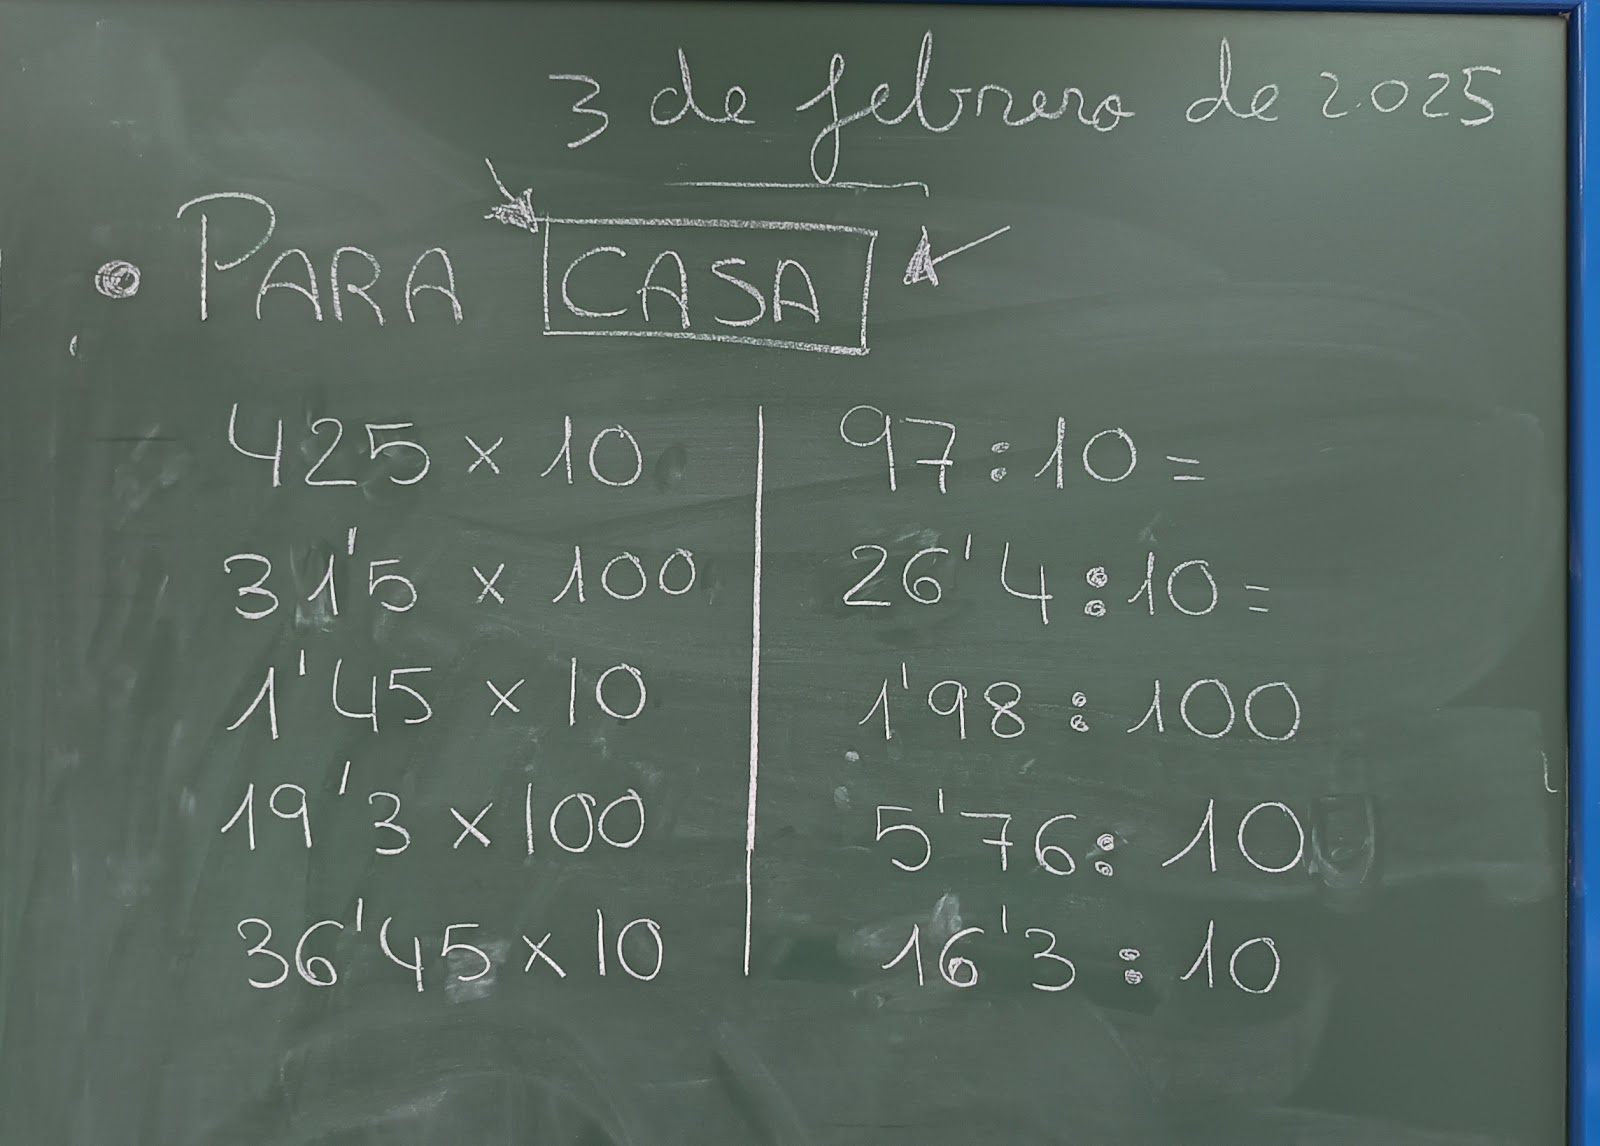 3 de febrero de 2.025
• PARA CASA
425 x 10
31'5 x 100
1'45 x 10
19'3 x 100
36'45 x 10
97 : 10 =
26'4 : 10 =
1'98 : 100
5'76 : 10
16'3 : 10